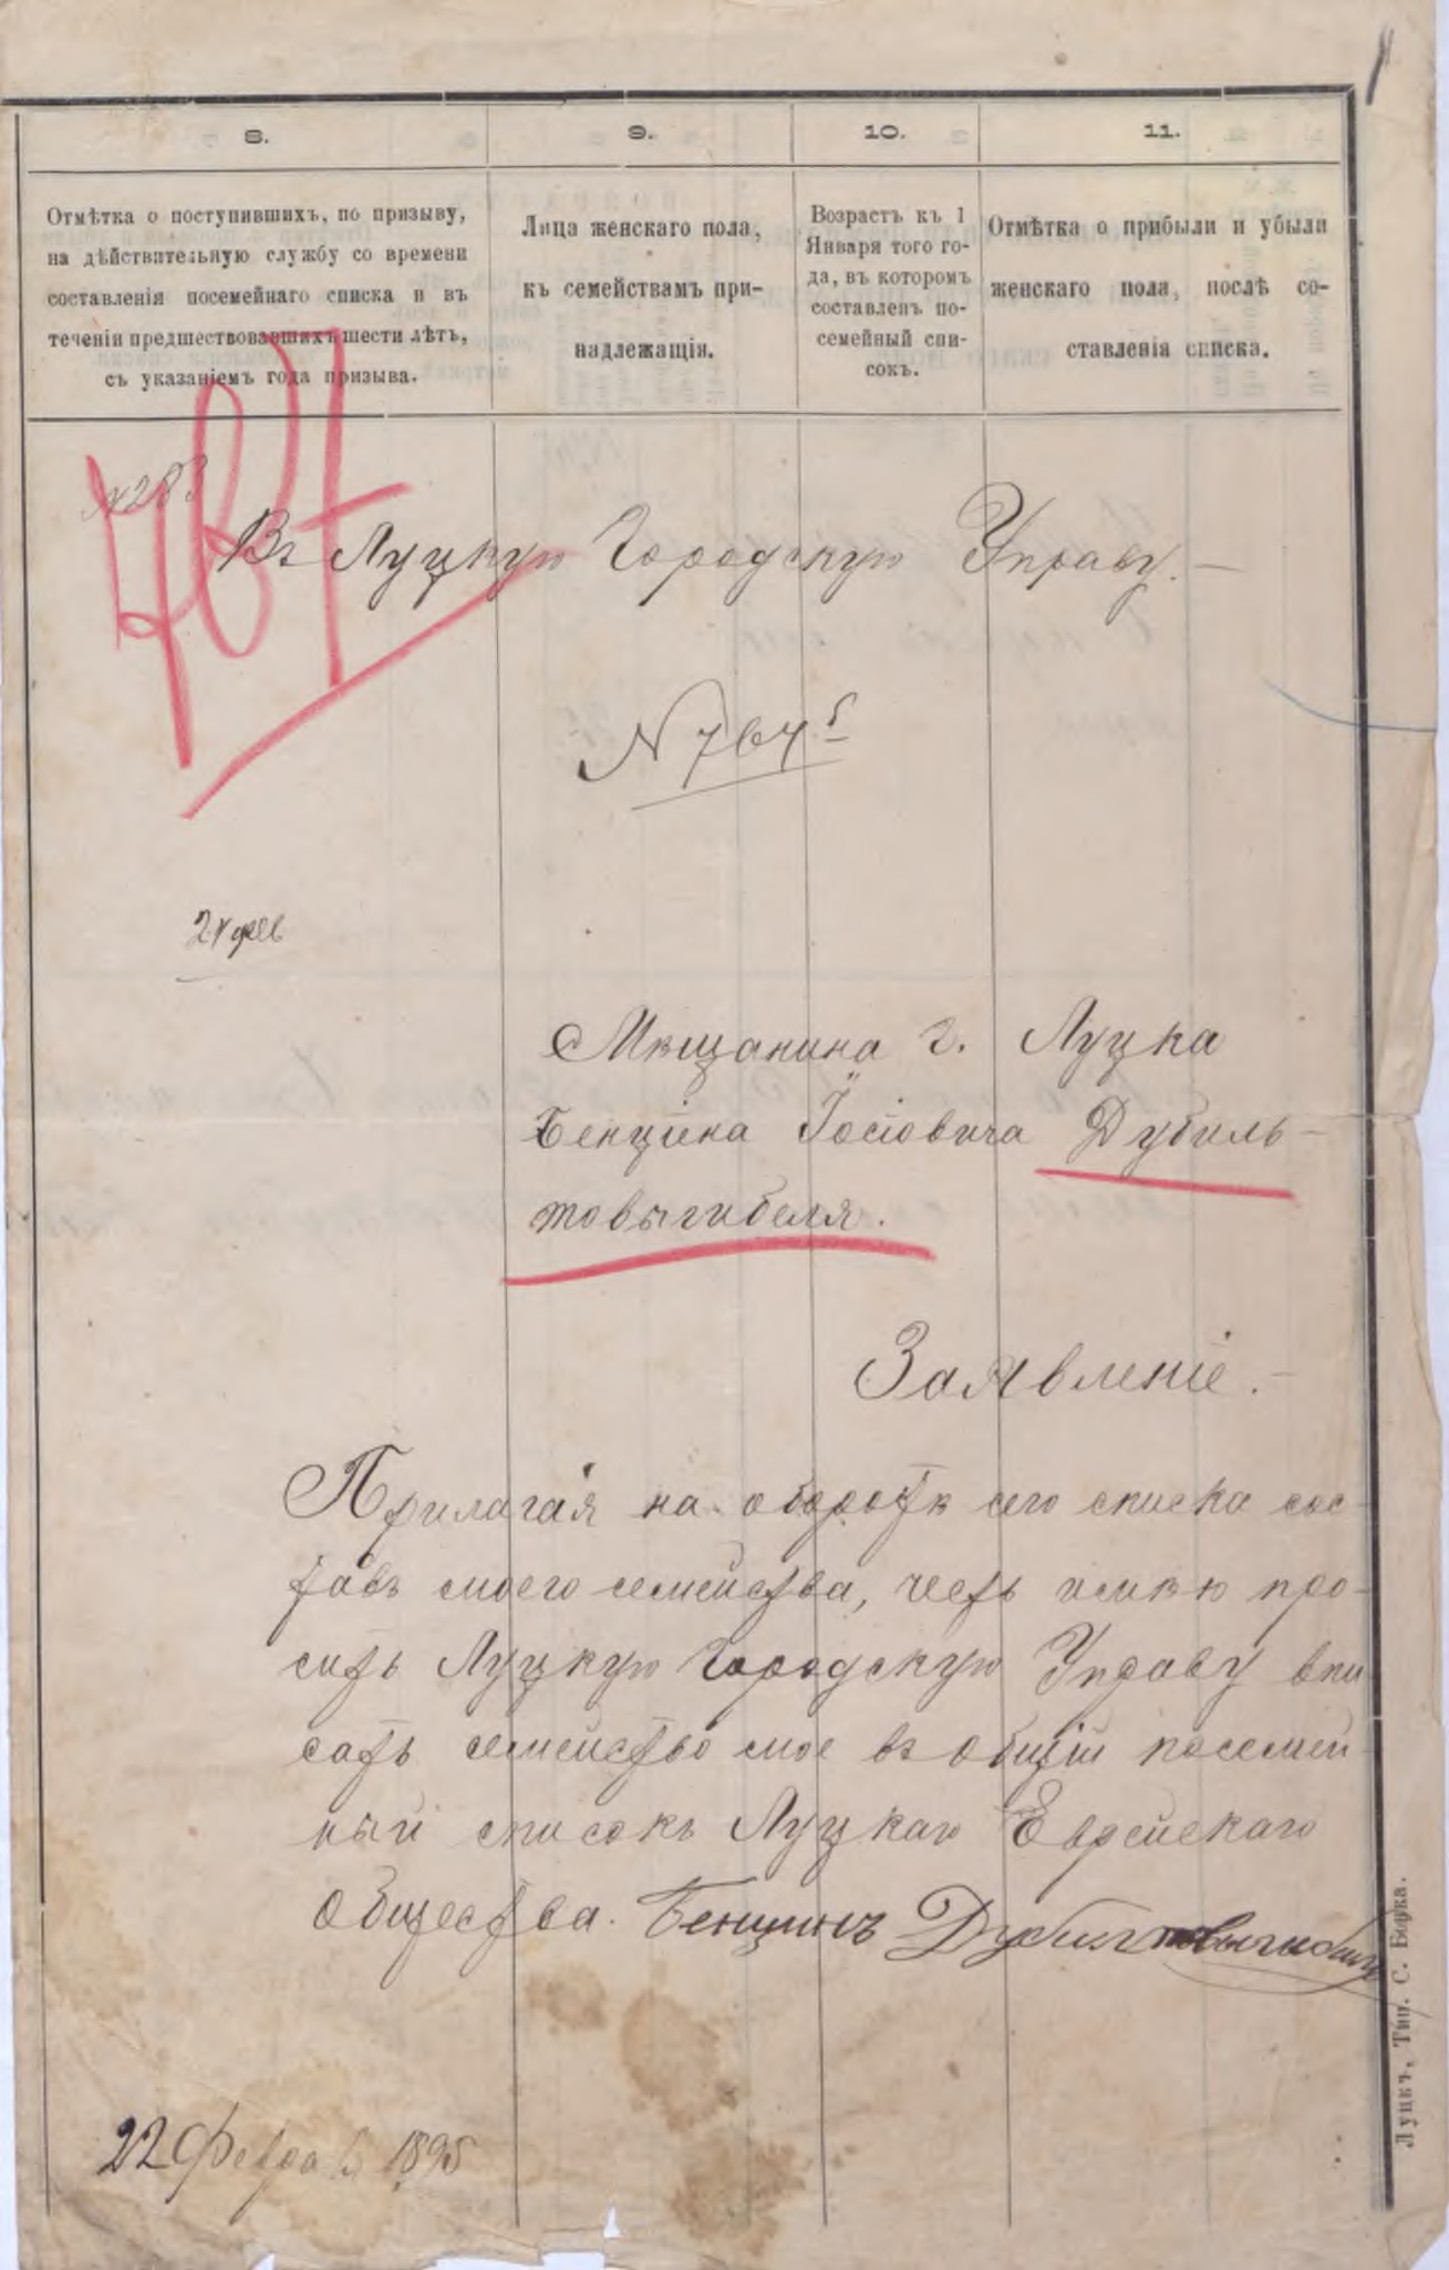 8.
9.
10.
11.
Отмѣтка о поступившихъ, по призыву,
на дѣйствительную службу со времени
составленія посемейнаго списка и въ
теченіи предшествовавшихъ шести лѣтъ,
съ указаніемъ года призыва.
Лица женскаго пола,
къ семействамъ при-
надлежащія.
Возрастъ къ 1
Января того го-
да, въ которомъ
составленъ по-
семейный спи-
сокъ.
Отмѣтка о прибыли и убыли
женскаго пола, послѣ со-
ставленія списка.
№ 283
Въ Луцкую Городскую Управу. —
№ 764
24 фев
Мѣщанина г. Луцка
Бенціена Іосіовича Дубиль-
товыгибеля.
Заявленіе. —
Прилагая на оборотѣ сего списка сос-
тавъ моего семейства, честь имѣю про-
сить Луцкую Городскую Управу впи
сать семейство мое въ общій посемей-
ный списокъ Луцкаго Еврейскаго
Общества. Бенционъ Дубилтовыгибиль
22 Февраля 1895
Луцкъ, Тип. С. Борка.